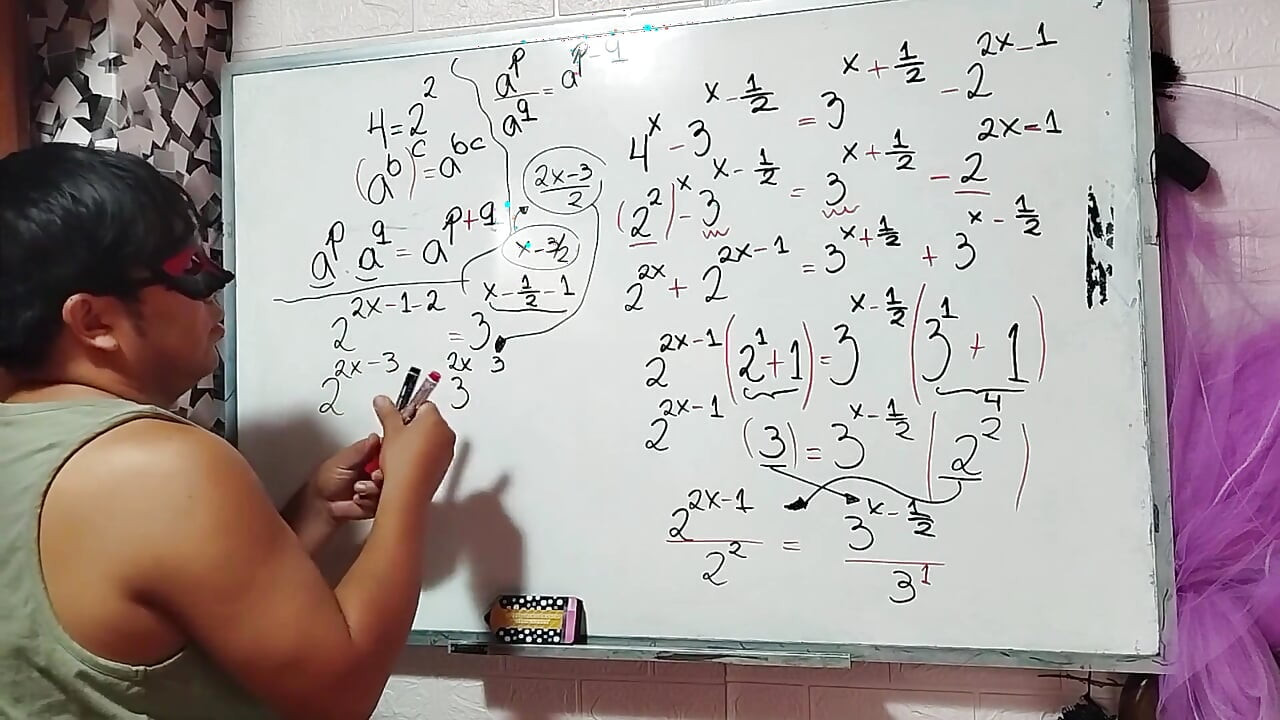 4 = 2^2
(a^b)^c = a^{bc}
a^p · a^q = a^{p+q}
a^p / a^q = a^{p-q}
(2x-3)/2
x - 3/2
x - 1/2 - 1
2^{2x-1-2} = 3
2^{2x-3} 3^{2x 3}
4^x - 3^{x - 1/2} = 3^{x + 1/2} - 2^{2x-1}
(2^2)^x - 3^{x - 1/2} = 3^{x + 1/2} - 2^{2x-1}
2^{2x} + 2^{2x-1} = 3^{x + 1/2} + 3^{x - 1/2}
2^{2x-1} (2^1 + 1) = 3^{x - 1/2} (3^1 + 1)
4
2^{2x-1} (3) = 3^{x - 1/2} (2^2)
2^{2x-1} / 2^2 = 3^{x - 1/2} / 3^1